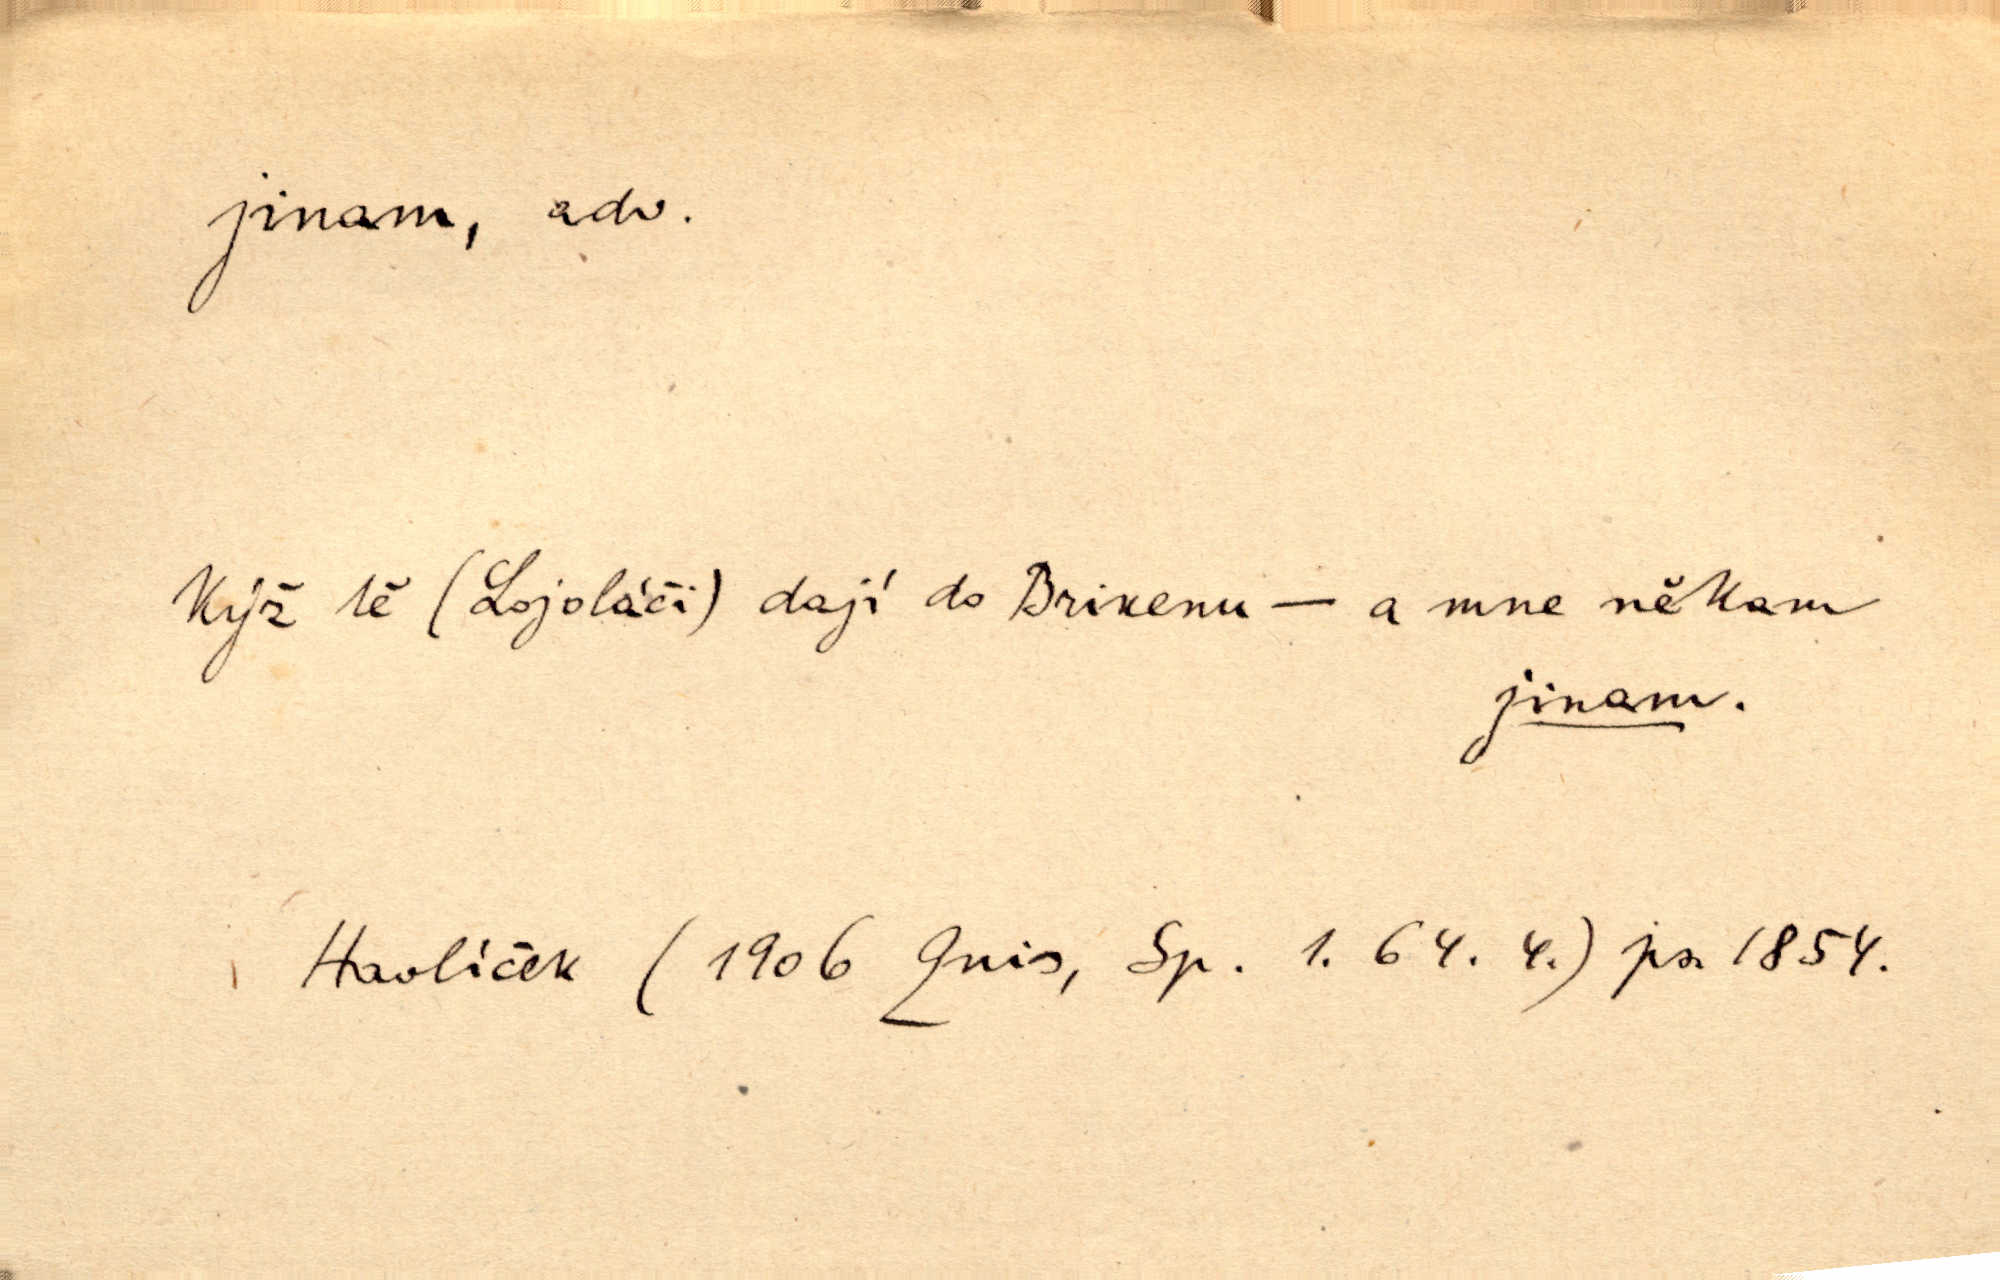 jinam, adv.
Kýž tě (Lojoláči) dají do Brixenu — a mne někam
jinam.
Havlíček (1906 Quis, Sp. 1. 64. 4.) ps. 1854.